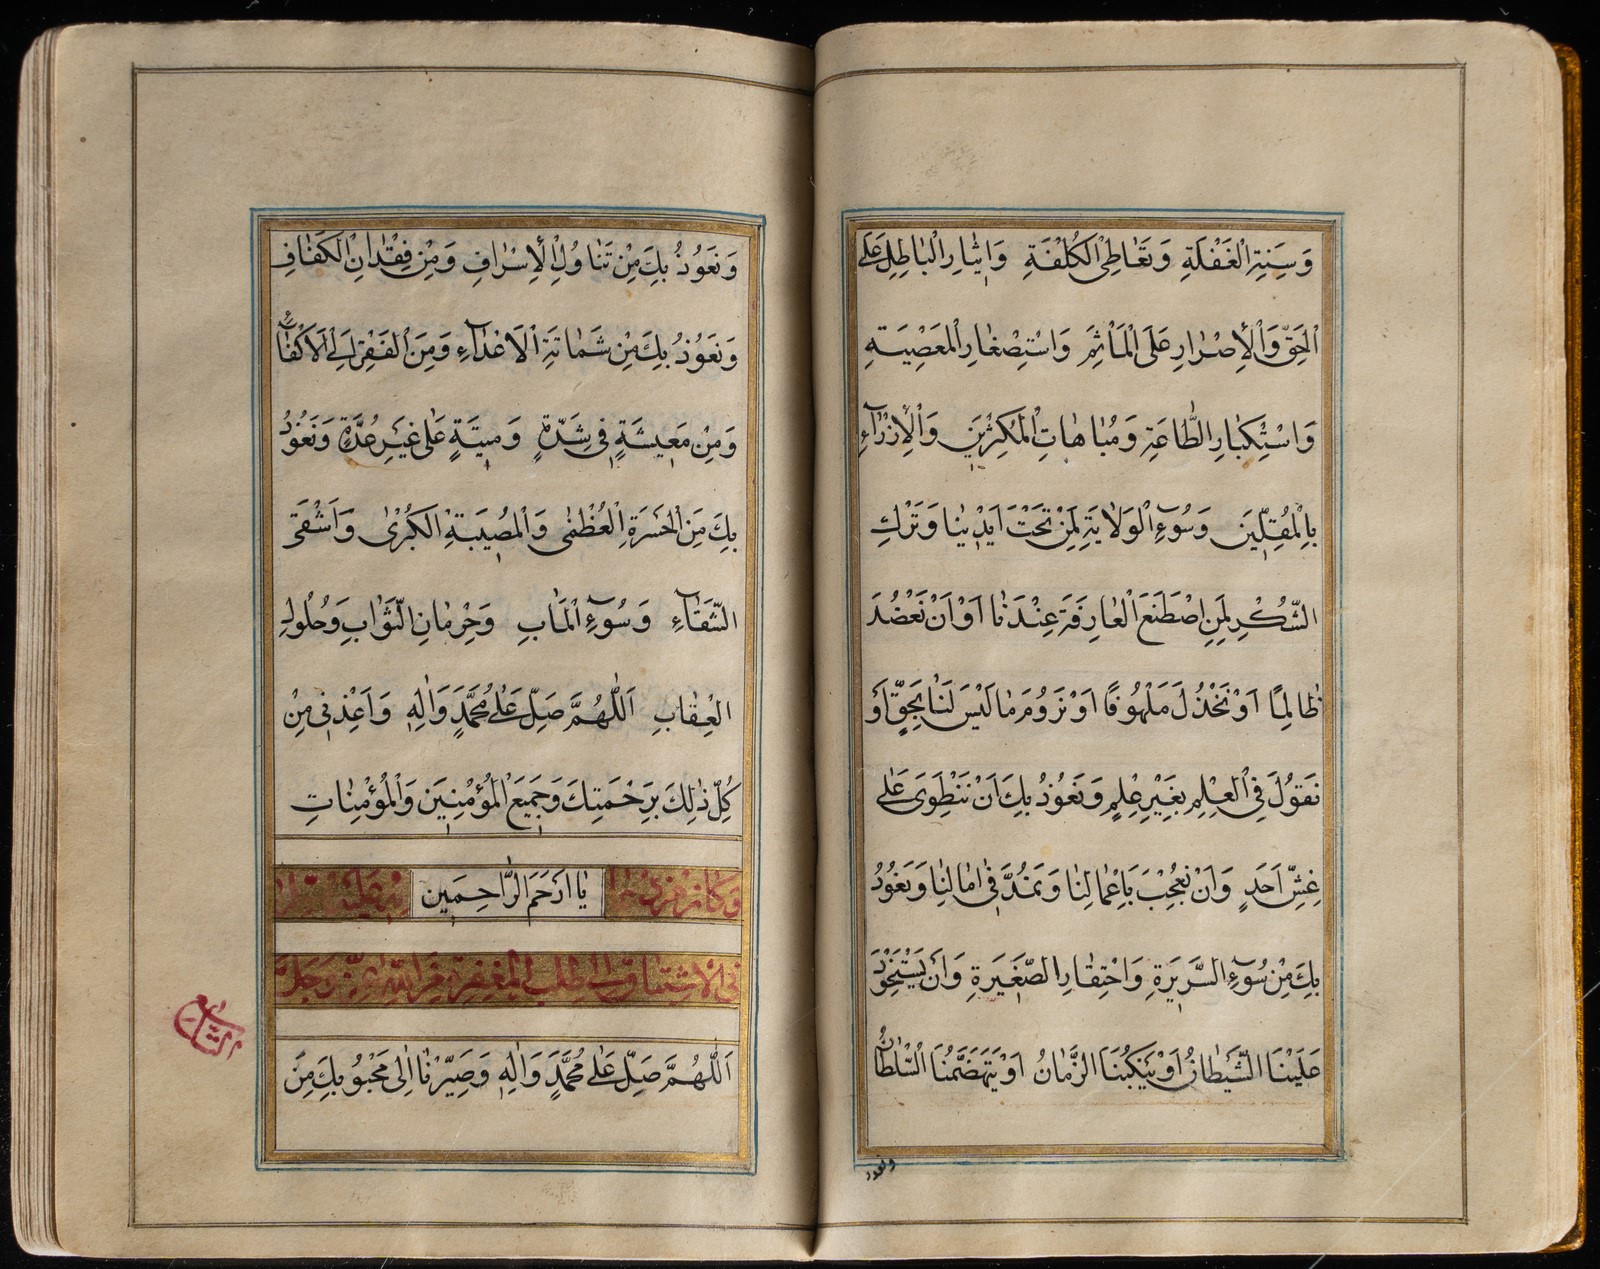 وَسِنَةِ الْغَفْلَةِ وَتَعَاطِى الْكُلْفَةِ وَايثَارِ الْبَاطِلِ عَلَى
الْحَقِّ وَالْإِصْرَارِ عَلَى الْمَأْثَمِ وَاسْتِصْغَارِ الْمَعْصِيَةِ
وَاسْتِكْبَارِ الطَّاعَةِ وَمُبَاهَاتِ الْمُكْثِرِينَ وَالْإِزْرَآءِ
بِالْمُقِلِّينَ وَسُوٓءِ الْوَلَايَةِ لِمَنْ تَحْتَ اَيْدِينَا وَتَرْكِ
الشُّكْرِ لِمَنِ اصْطَنَعَ الْعَارِفَةَ عِنْدَنَا اَوْ اَنْ نَعْضُدَ
ظَالِمًا اَوْ نَخْذُلَ مَلْهُوفًا اَوْ نَرُومَ مَا لَيْسَ لَنَا بِحَقٍّ اَوْ
نَقُولَ فِى الْعِلْمِ بِغَيْرِ عِلْمٍ وَنَعُوذُ بِكَ اَنْ نَنْطَوِىَ عَلَى
غِشِّ اَحَدٍ وَاَنْ نُعْجِبَ بِاَعْمَالِنَا وَنَمُدَّ فِى اٰمَالِنَا وَنَعُوذُ
بِكَ مِنْ سُوٓءِ السَّرِيرَةِ وَاحْتِقَارِ الصَّغِيرَةِ وَاَنْ يَسْتَحْوِذَ
عَلَيْنَا الشَّيْطَانُ اَوْ يَنْكُبَنَا الزَّمَانُ اَوْ يَتَهَضَّمَنَا السُّلْطَانُ
ونعوذ
وَنَعُوذُ بِكَ مِنْ تَنَاوُلِ الْإِسْرَافِ وَمِنْ فِقْدَانِ الْكَفَافِ
وَنَعُوذُ بِكَ مِنْ شَمَاتَةِ الْاَعْدَآءِ وَمِنَ الْفَقْرِ اِلَى الْاَكْفَآءِ
وَمِنْ مَعِيشَةٍ فِى شِدَّةٍ وَمِيتَةٍ عَلَى غَيْرِ عُدَّةٍ وَنَعُوذُ
بِكَ مِنَ الْحَسْرَةِ الْعُظْمٰى وَالْمُصِيبَةِ الْكُبْرٰى وَاَشْقَى
الشَّقَآءِ وَسُوٓءِ الْمَاٰبِ وَحِرْمَانِ الثَّوَابِ وَحُلُولِ
الْعِقَابِ اَللّٰهُمَّ صَلِّ عَلٰى مُحَمَّدٍ وَاٰلِهِ وَاَعِذْنِى مِنْ
كُلِّ ذٰلِكَ بِرَحْمَتِكَ وَجَمِيعَ الْمُؤْمِنِينَ وَالْمُؤْمِنَاتِ
وكان من يَا اَرْحَمَ الرَّاحِمِينَ
فى الاشتياق الى طلب المغفرة من الله عز وجل
اَللّٰهُمَّ صَلِّ عَلٰى مُحَمَّدٍ وَاٰلِهِ وَصَيِّرْنَا اِلٰى مَحْبُوبِكَ مِنَ